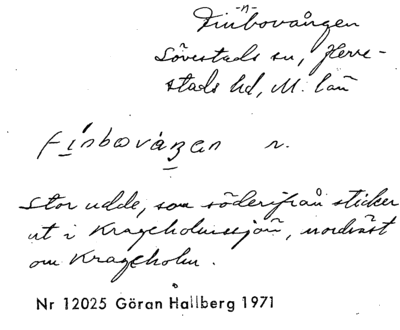 -n-
Finbovången
Sövestads sn, Herre-
stads hd, M. län
finbováŋen n.
Stor udde, som söderifrån sticker
ut i Krageholmssjön, nordväst
om Krageholm.
Nr 12025 Göran Hallberg 1971